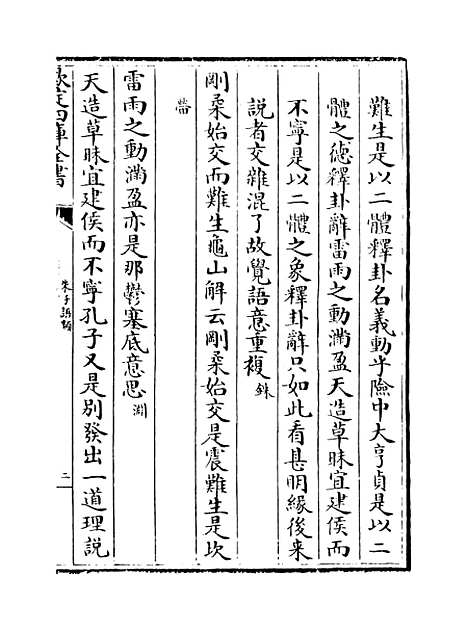 難生是以二體釋卦名義動乎險中大亨貞是以二
體之德釋卦辭雷雨之動滿盈天造草昧宜建侯而
不寧是以二體之象釋卦辭只如此看甚明緣後來
說者交雜混了故覺語意重複銖
剛柔始交而難生龜山解云剛柔始交是震難生是坎
㽦
雷雨之動滿盈亦是那鬱塞底意思淵
天造草昧宜建侯而不寧孔子又是別發出一道理說
欽定四庫全書
朱子語類
三